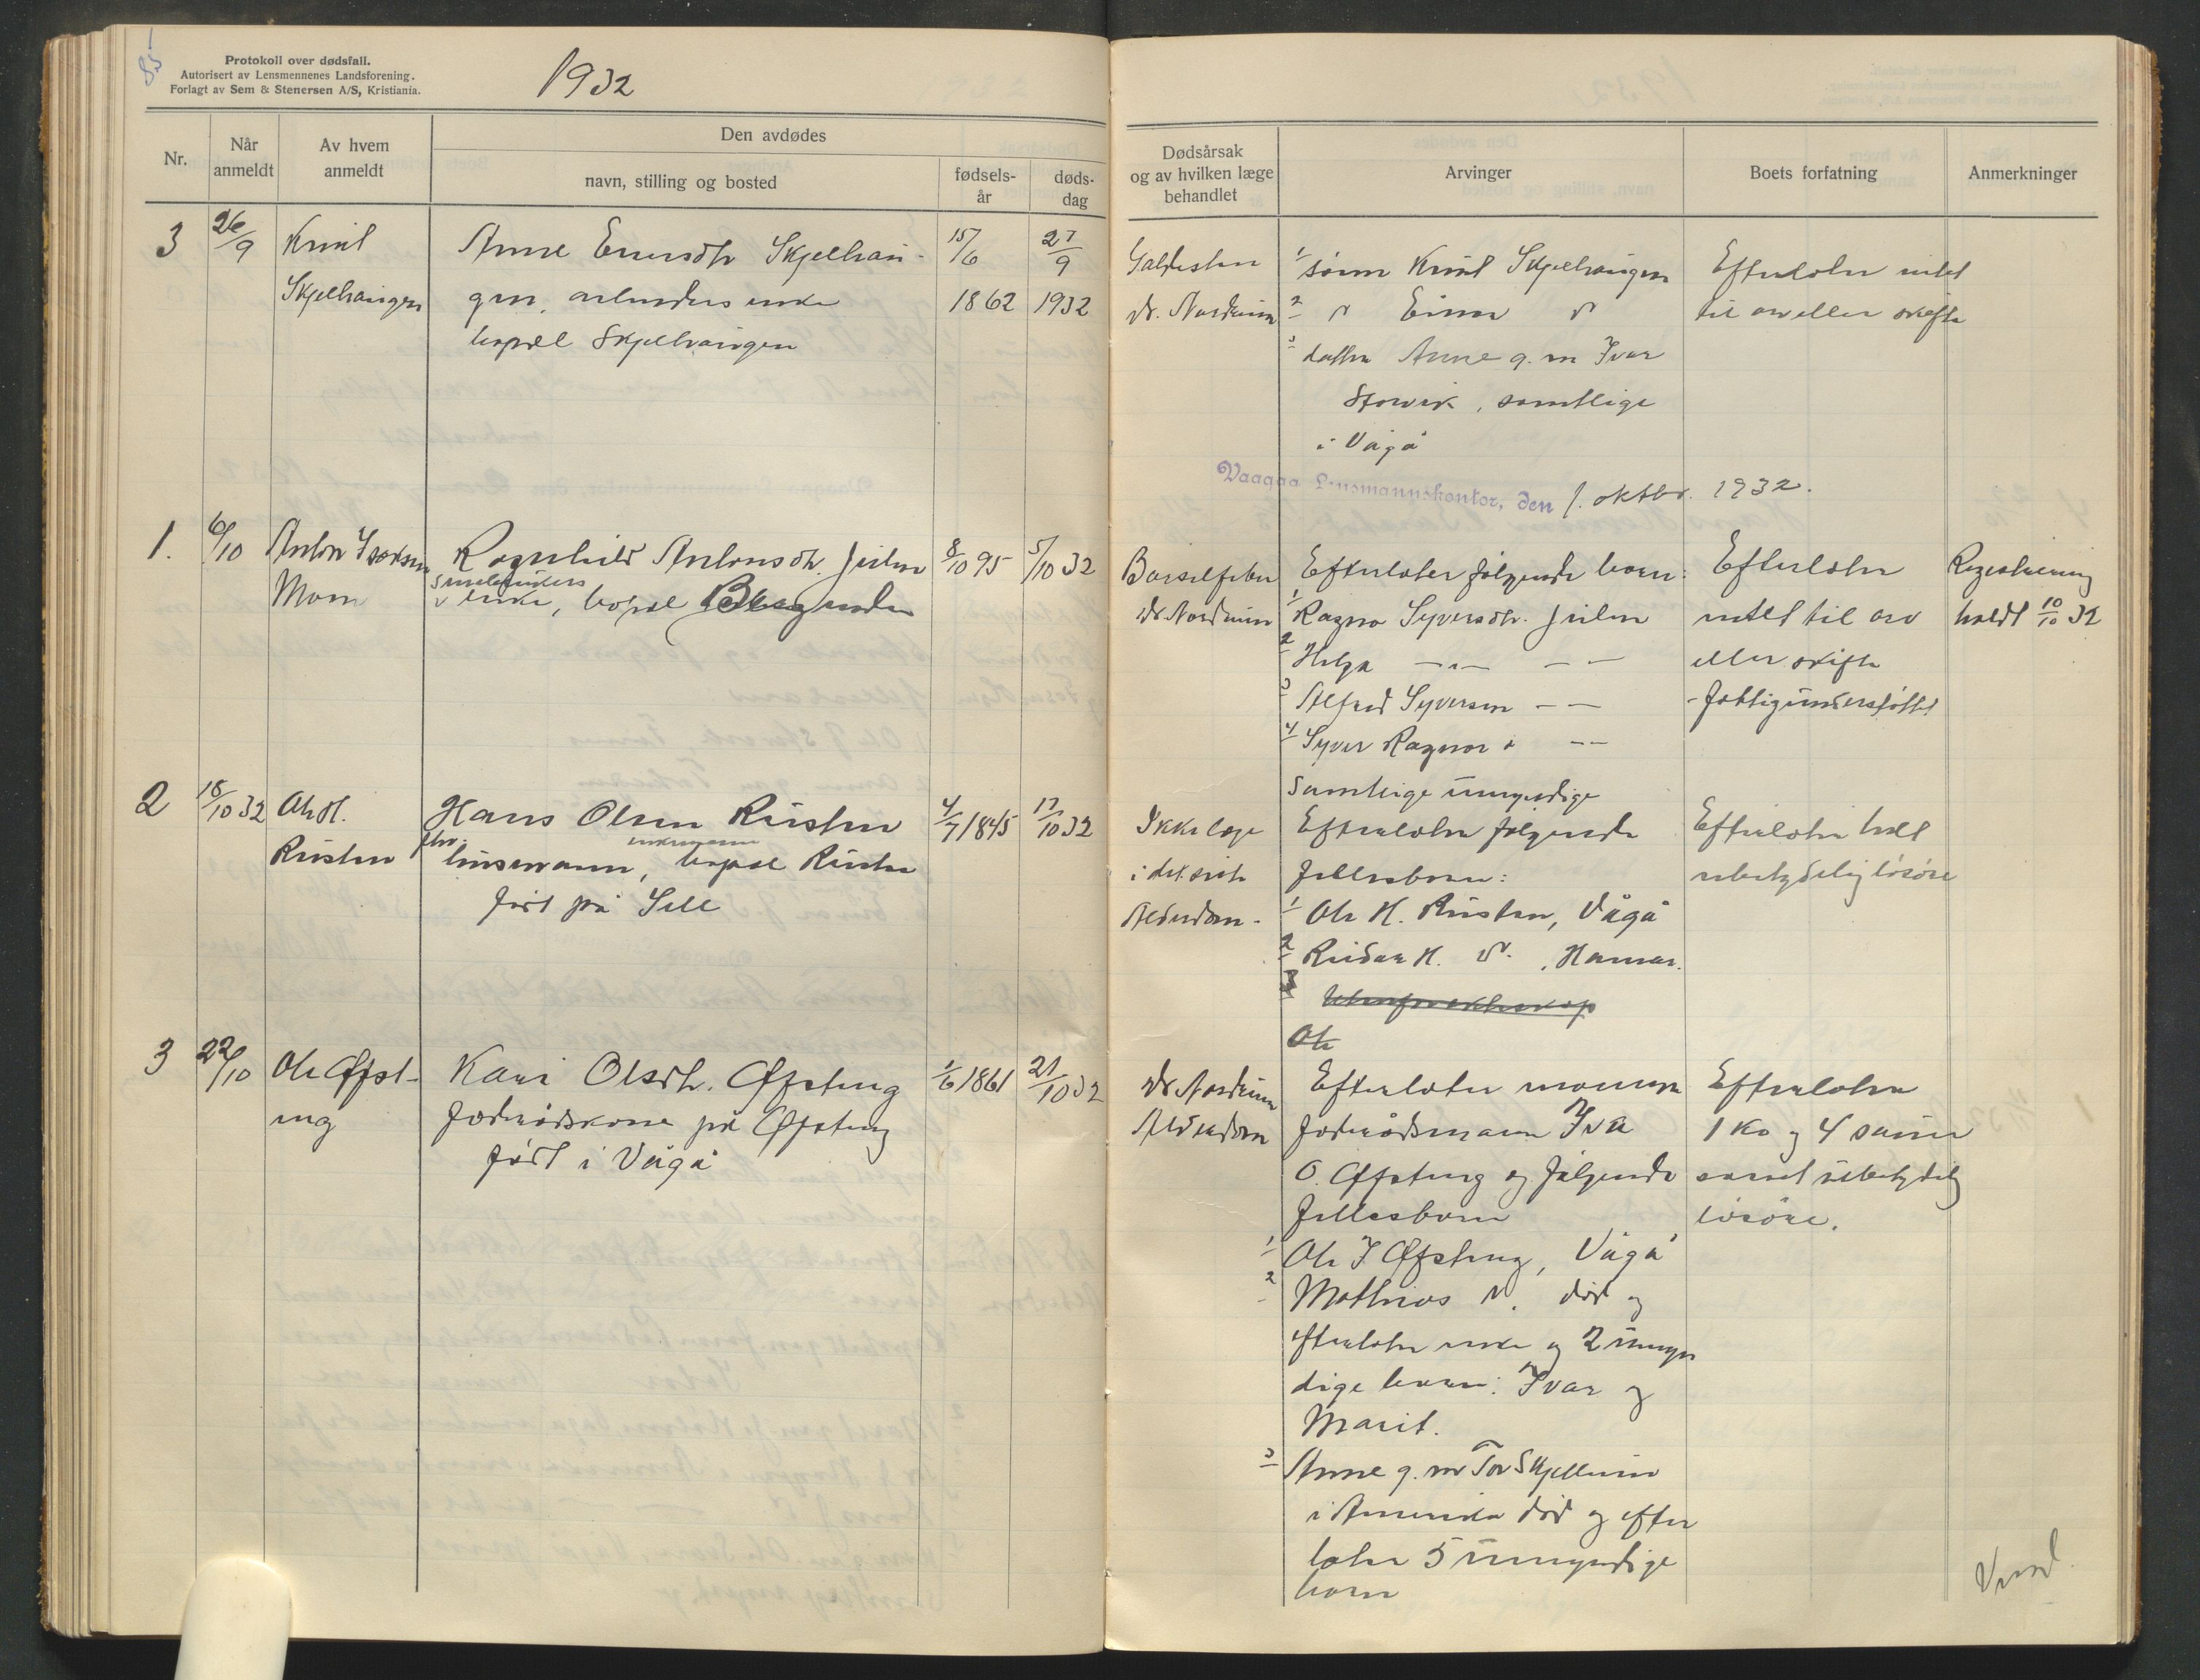 85
Protokoll over dødsfall.
Autorisert av Lensmennenes Landsforening.
Forlagt av Sem & Stenersen A/S, Kristiania.
1932
Nr.
Når anmeldt
Av hvem anmeldt
Den avdødes
navn, stilling og bosted
fødsels-år
døds-dag
Dødsårsak
og av hvilken læge
behandlet
Arvinger
Boets forfatning
Anmerkninger
3
26/9
Knut
Skjelhaugen
Anne Eners dtr Skjelhau-
gen, arbeiders enke
bopæl Skjelhaugen
15/6
1862
27/9
1932
Galdesten
dr. Nordrum
1 sønn Knut Skjelhaugen
2 " Einar "
3 datter Anne g. m Ivar
Storvik, samtlige
i Vågå
Efterlater intet
til arv eller skifte
Vaagaa Lensmannskontor, den 1. oktbr. 1932.
1.
6/10
Anton Isaksen
Moen
Ragnhild Antonsdtr. Julen
småbrukers
enke, bopæl
8/10 95
5/10 32
Barselfeber
dr. Nordrum
Efterlater følgende barn:
1 Ragna Syversdtr. Julen
2 Helga — " — — —
3 Alfred Syversen — —
4 Syver Ragnar " — —
samtlige umyndige
Efterlater
intet til arv
eller skifte
- fattigunderstøttet
Registrering
holdt 10/10 32
2
18/10 32
Ole H.
Rusten
Hans Olsen Rusten
fhv. enkemann
lensmann, bopæl Rusten
født på Sell
4/7 1845
17/10 32
Ikke læge
i det siste
Alderdom-
Efterlater følgende
fellesbarn:
1 Ole H. Rusten, Vågå
2 Reidar H. " , Hamar.
3
Ole
Efterlater kort
ubetydelig løsøre
3
22/10
Ole Øfst-
eng
Kari Olsdtr. Øfsteng
føderådskone på Øfsteng
født i Vågå
1/6 1861
21/10 32
dr. Nordrum
Alderdom
Efterlater mannen
føderådsmann Iver
O. Øfsteng og følgende
fellesbarn
1 Ole I Øfsteng, Vågå
2 Mathias ". død og
efterlater enke og 2 umyn
dige barn: Ivar og
Marit.
3 Anne g. m Tor Skjellum
i Amerika død og efter
later 5 umyndige
barn
Efterlater
1 ko og 4 sauer
samt ubetydelig
løsøre.
Vend.